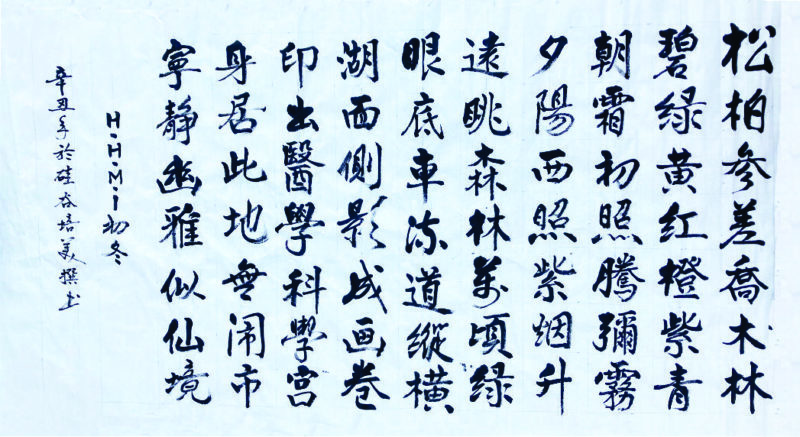 松柏參差喬木林
碧绿黄红橙紫青
朝霜初照騰彌霧
夕陽西照紫烟升
遠眺森林萬頃绿
眼底車流道縱横
湖面側影成画卷
印出醫學科學宫
身居此地無闹市
寧靜幽雅似仙境
H.H.M.I初冬
辛丑年於硅谷培美撰书